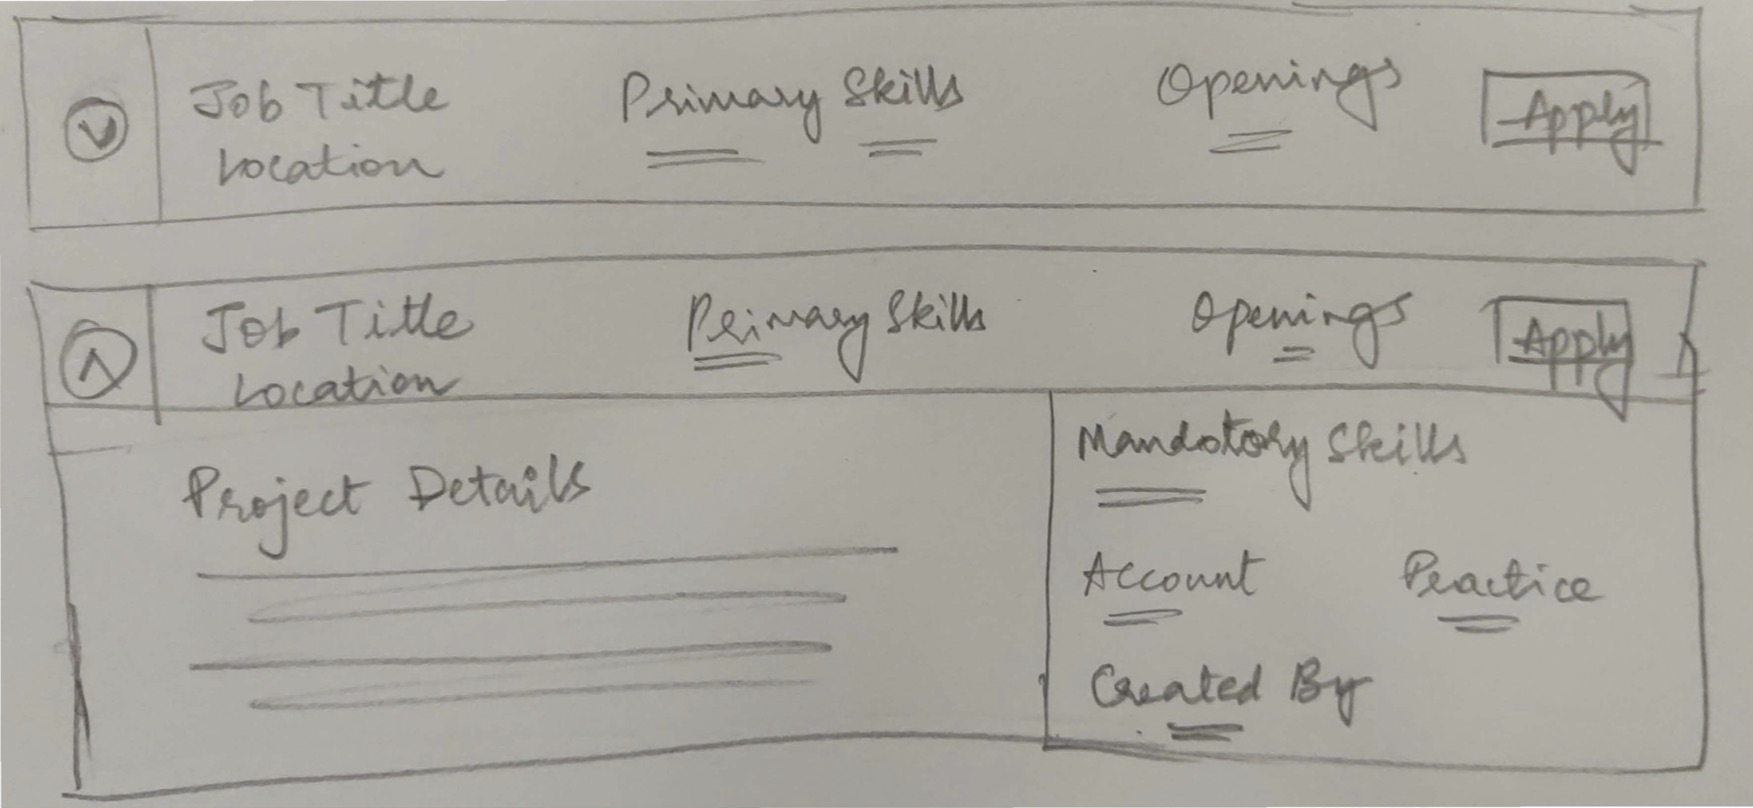 Job Title Primary Skills Openings Apply
Location
Job Title Primary Skills Openings Apply
Location
Mandotory Skills
Project Details
Account Practice
Created By